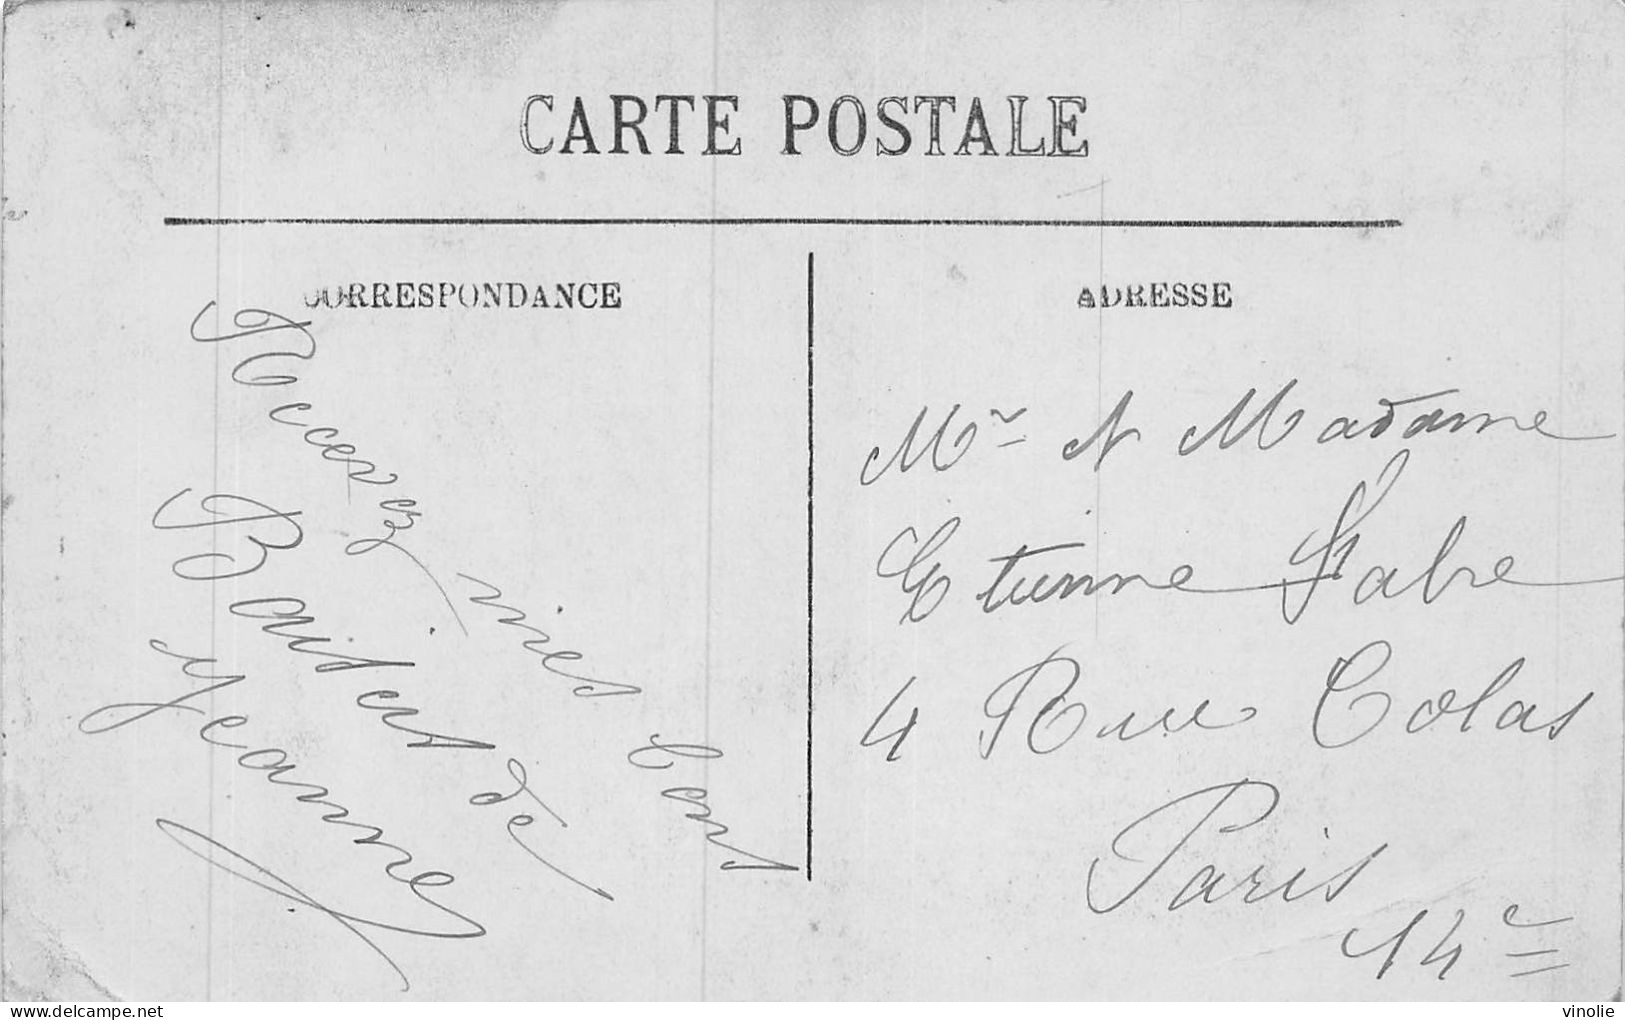 CARTE POSTALE
CORRESPONDANCE
Recevez mes bons
Baisers de
Jeanne
ADRESSE
Mr et Madame
Etienne Fabre
4 Rue Colas
Paris
14e
delcampe.net
vinolie